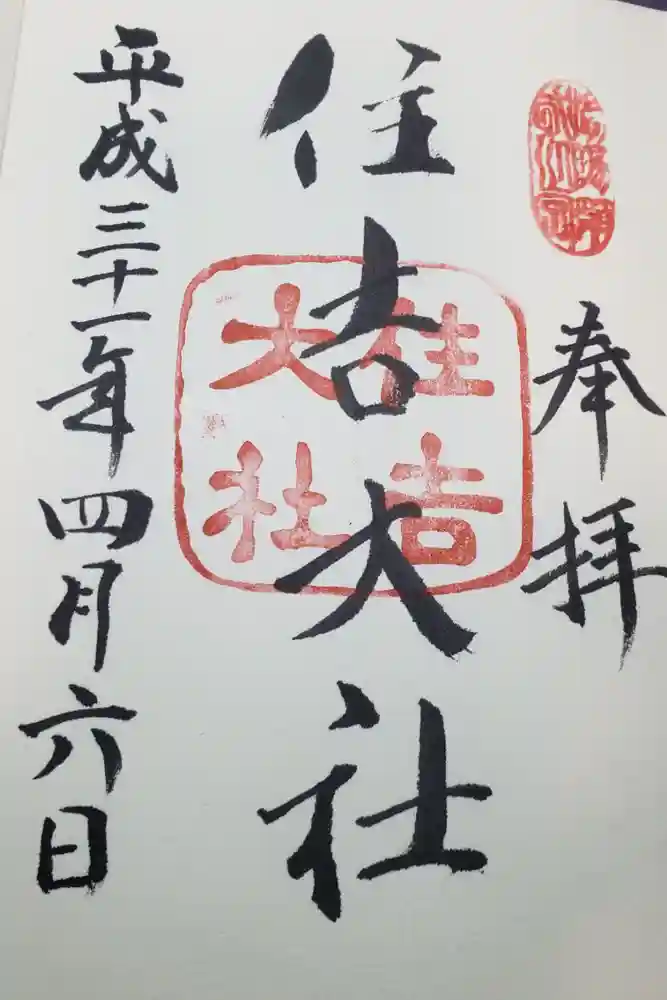 奉拝
住吉大社
住吉
大社
平成三十一年四月六日